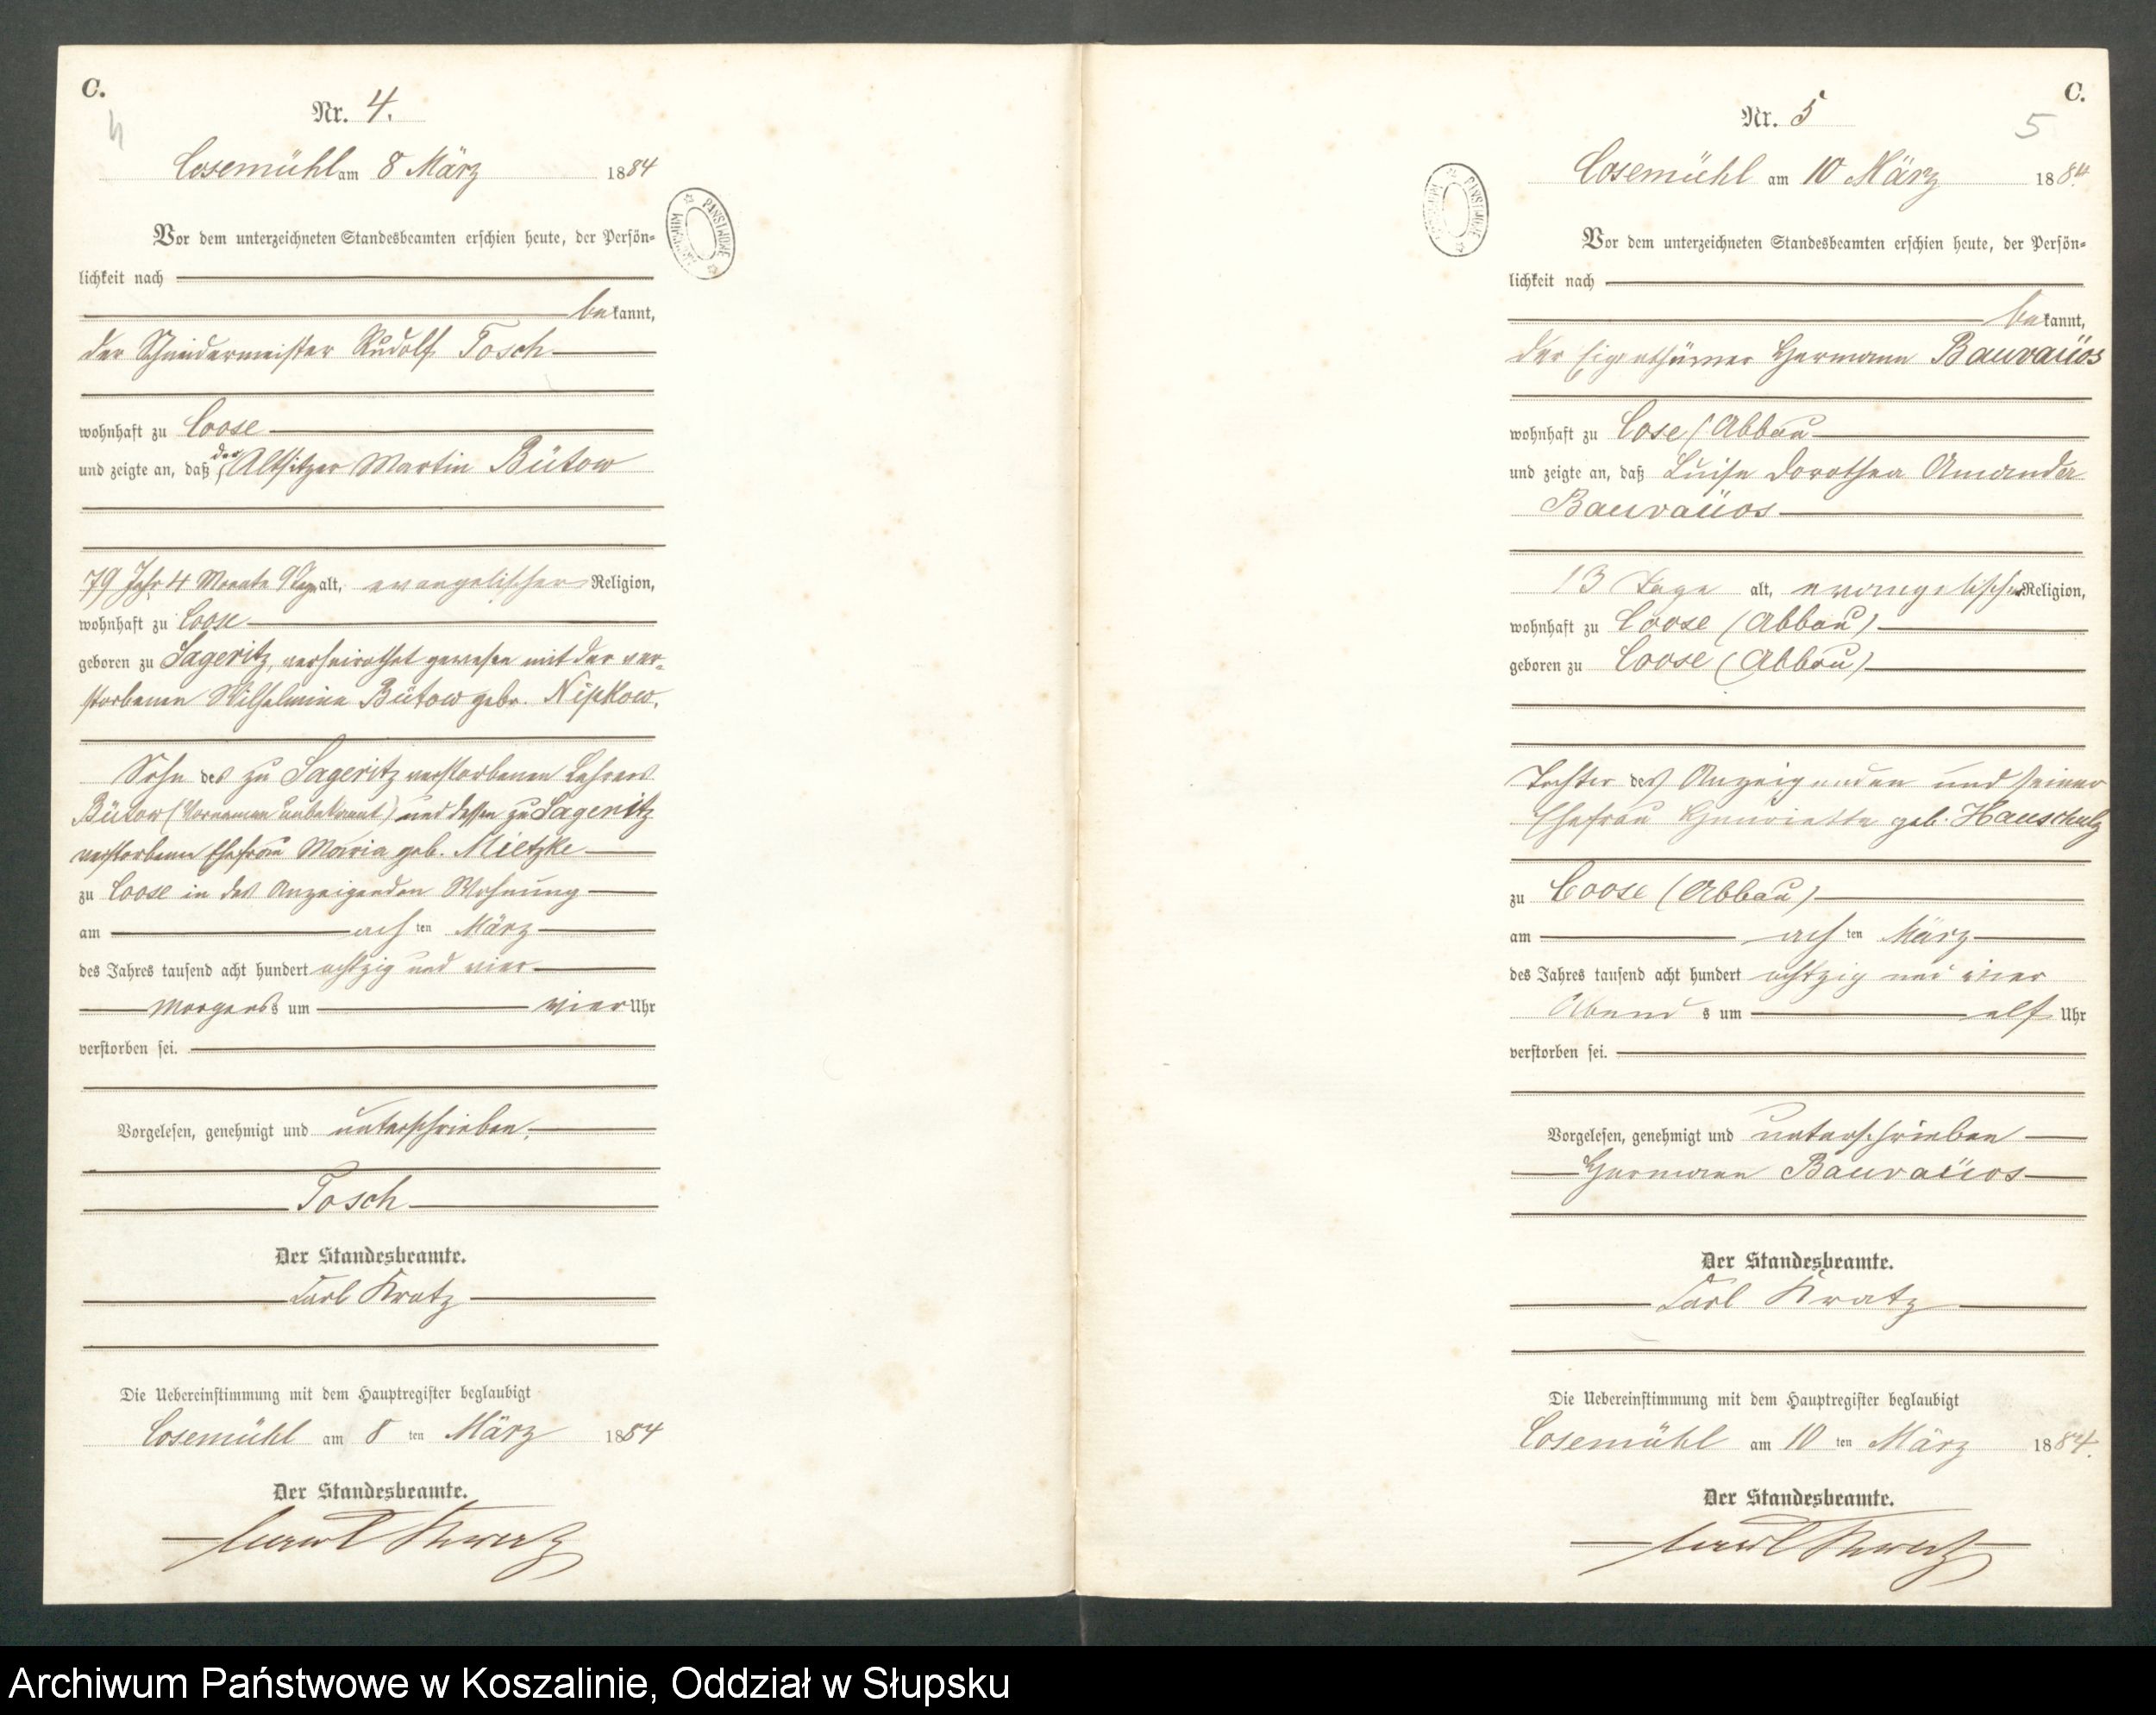 C.
4
Nr. 4.
Cosemühl am 8 März 1884
Vor dem unterzeichneten Standesbeamten erschien heute, der Persön-
lichkeit nach
bekannt,
der Schneidermeister Rudolf Tosch
wohnhaft zu Coose
und zeigte an, daß der Altsitzer Martin Bütow
79 Jahr 4 Monate 9 Tage alt, evangelischer Religion,
wohnhaft zu Coose
geboren zu Sageritz, verheirathet gewesen mit der ver-
storbenen Wilhelmine Bütow gebr. Nipkow.
Sohn des zu Sageritz verstorbenen Lehrers
Bütow (Vornamen unbekannt) und dessen zu Sageritz
verstorbene Ehefrau Maria geb. Mietzke
zu Coose in des Anzeigenden Wohnung
am acht ten März
des Jahres tausend acht hundert achtzig und vier
Morgens um vier Uhr
verstorben sei.
Vorgelesen, genehmigt und unterschrieben.
Tosch
Der Standesbeamte.
Carl Kratz
Die Uebereinstimmung mit dem Hauptregister beglaubigt
Cosemühl am 8 ten März 1884
Der Standesbeamte.
Carl Kratz
ARCHIWUM PAŃSTWOWE
C.
5
Nr. 5
Cosemühl am 10 März 1884.
Vor dem unterzeichneten Standesbeamten erschien heute, der Persön-
lichkeit nach
bekannt,
der Eigenthümer Hermann Bauvaüos
wohnhaft zu Cose (Abbau
und zeigte an, daß Luise Dorothea Amanda
Bauvaüos
13 Tage alt, evangelischer Religion,
wohnhaft zu Coose (Abbau)
geboren zu Coose (Abbau)
Tochter des Anzeigenden und seiner
Ehefrau Henriette geb. Hauschulz
zu Coose (Abbau)
am acht ten März
des Jahres tausend acht hundert achtzig und vier
Abends um elf Uhr
verstorben sei.
Vorgelesen, genehmigt und unterschrieben
Hermann Bauvaüos
Der Standesbeamte.
Carl Kratz
Die Uebereinstimmung mit dem Hauptregister beglaubigt
Cosemühl am 10 ten März 1884.
Der Standesbeamte.
Carl Kratz
ARCHIWUM PAŃSTWOWE
Archiwum Państwowe w Koszalinie, Oddział w Słupsku